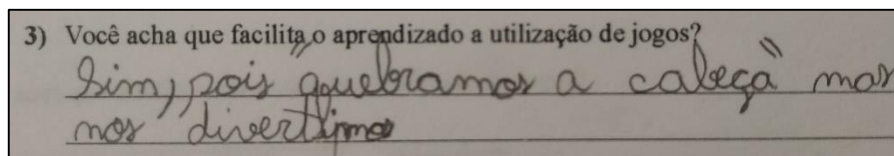 3) Você acha que facilita o aprendizado a utilização de jogos?
Sim, pois "quebramos a cabeça" mas
nos divertimos